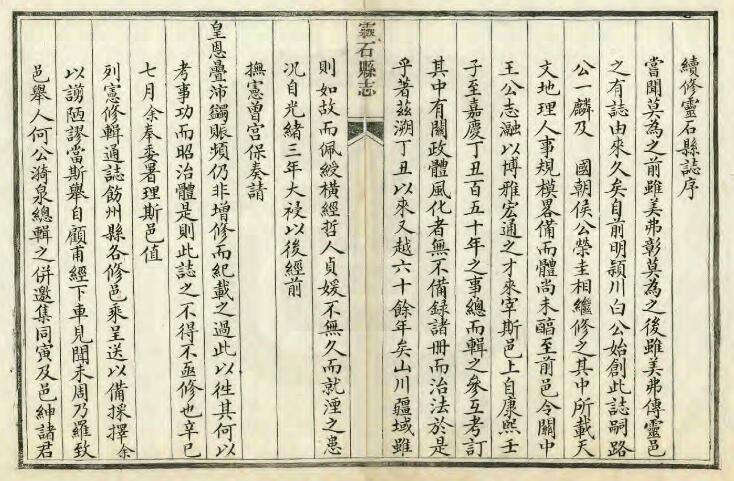 續修靈石縣誌序
嘗聞莫為之前雖美弗彰莫為之後雖美弗傳靈邑
之有誌由來久矣自前明潁川白公始創此誌嗣路
公一麟及 國朝侯公榮圭相繼修之其中所載天
文地理人事規模畧備而體尚未醇至前邑令關中
王公志瀜以博雅宏通之才來宰斯邑上自康熙壬
子至嘉慶丁丑百五十年之事總而輯之參互考訂
其中有關政體風化者無不備録諸冊而治法於是
乎著茲溯丁丑以來又越六十餘年矣山川疆域雖
靈石縣志
則如故而佩綬橫經哲人貞媛不無久而就湮之患
況自光緒三年大祲以後經前
撫憲曾宫保奏請
皇恩疊沛蠲賑頻仍非增修而紀載之過此以徃其何以
考事功而昭治體是則此誌之不得不亟修也辛巳
七月余奉委署理斯邑值
列憲修輯通誌飭州縣各修邑乘呈送以備採擇余
以謭陋謬當斯舉自顧甫經下車見聞未周乃羅致
邑舉人何公漪泉總輯之併邀集同寅及邑紳諸君